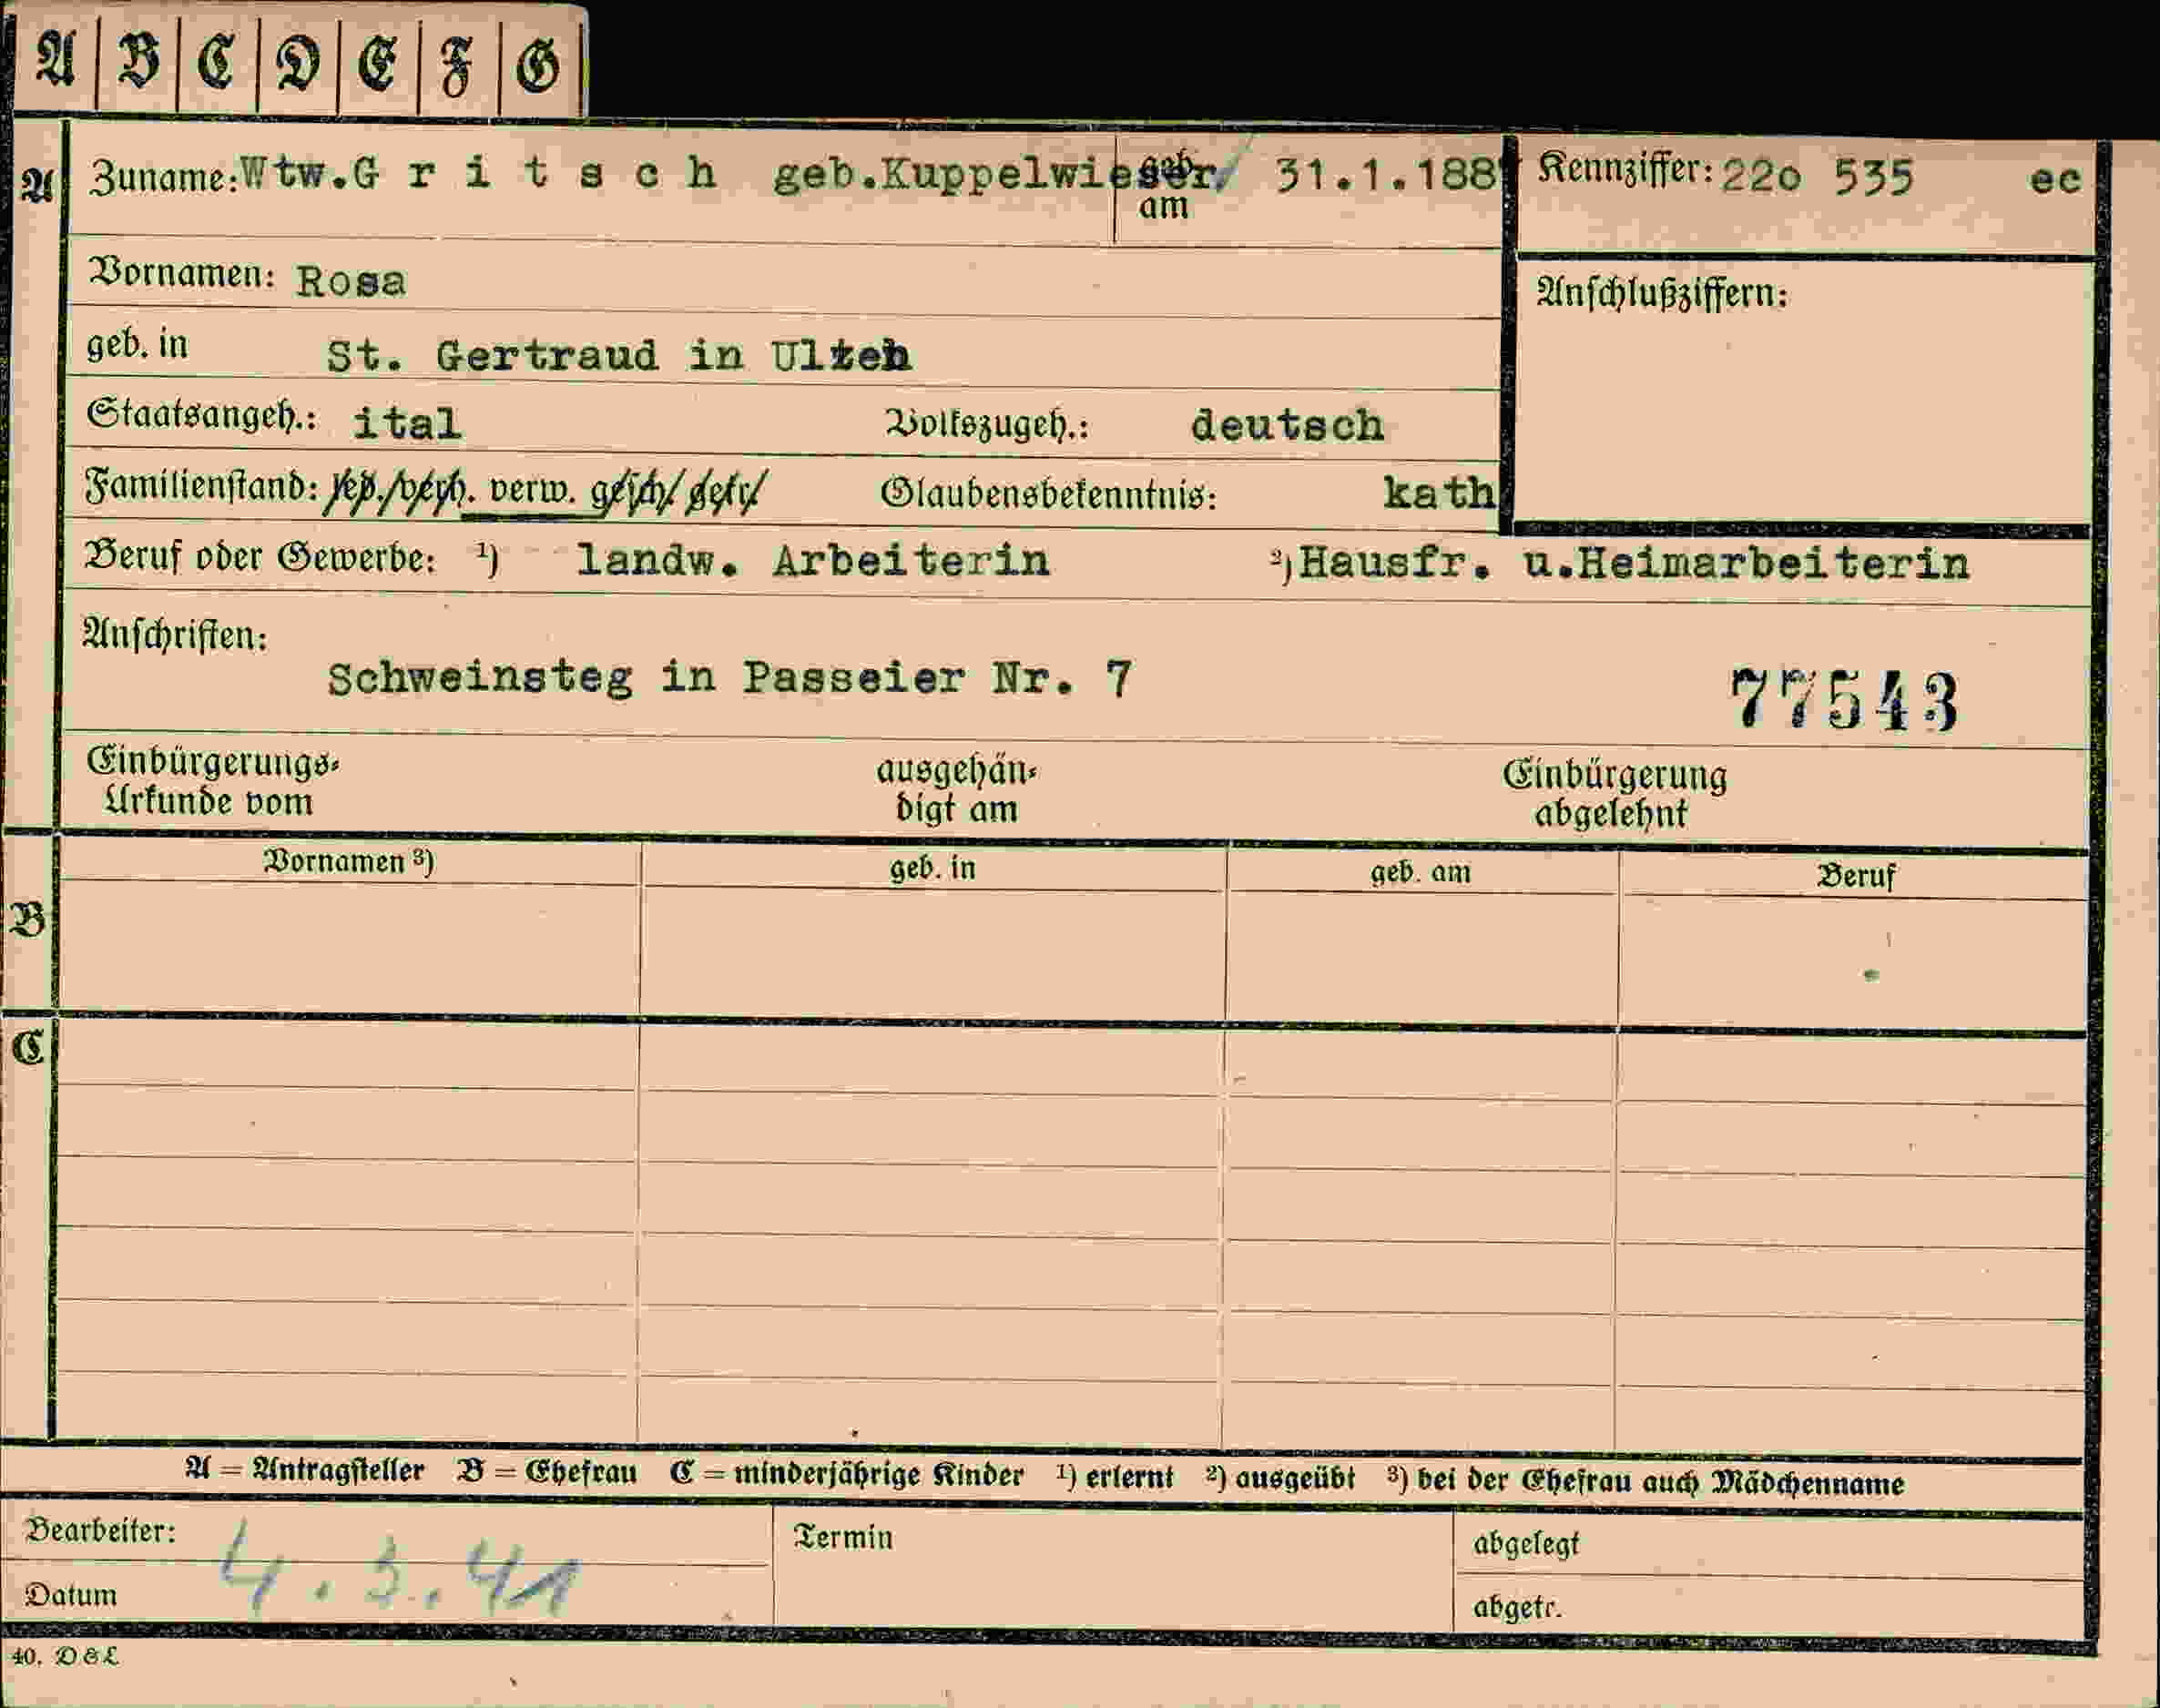 A B C D E F G
A Zuname: Wtw. G r i t s c h geb. Kuppelwieser geb. am 31.1.188 Kennziffer: 22o 535 ec
Vornamen: Rosa
Anschlußziffern:
geb. in St. Gertraud in Ulten
Staatsangeh.: ital Volkszugeh.: deutsch
Familienstand: led. verh. verw. gesch. getr. Glaubensbekenntnis: kath
Beruf oder Gewerbe: ¹) landw. Arbeiterin ²) Hausfr. u.Heimarbeiterin
Anschriften:
Schweinsteg in Passeier Nr. 7 77543
Einbürgerungs- ausgehän- Einbürgerung
Urkunde vom digt am abgelehnt
Vornamen ³) geb. in geb. am Beruf
B
C
A = Antragsteller B = Ehefrau C = minderjährige Kinder ¹) erlernt ²) ausgeübt ³) bei der Ehefrau auch Mädchenname
Bearbeiter: Termin abgelegt
4.3.41
Datum abgetr.
40. D & L